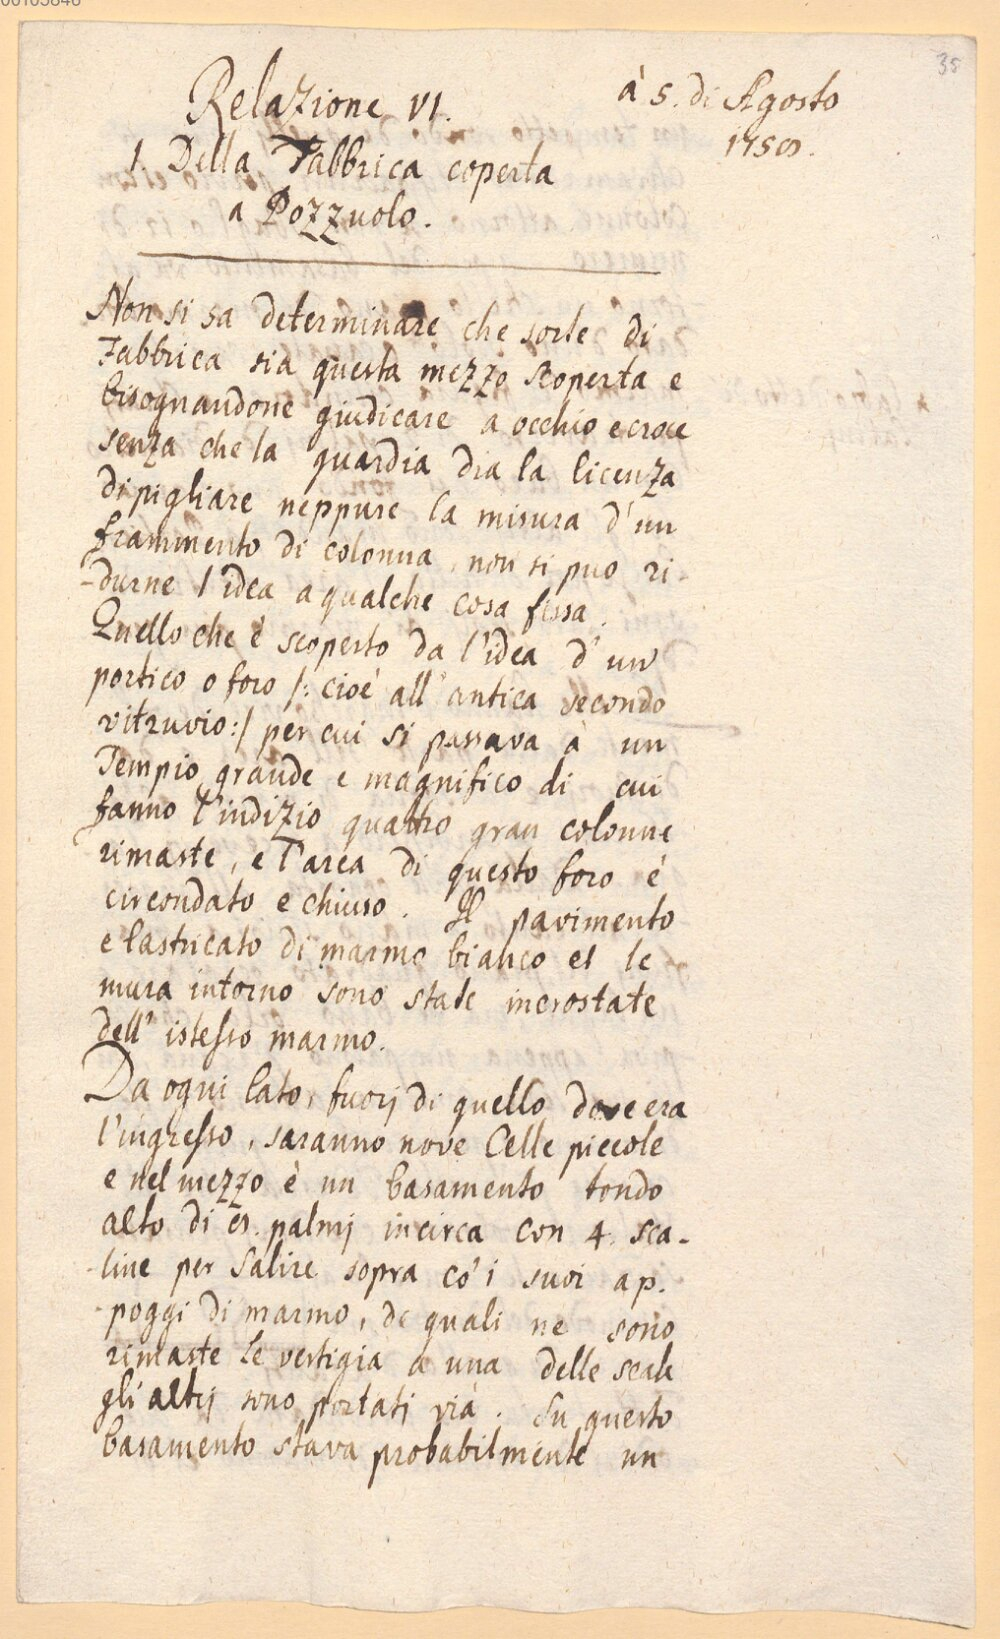 00105846
35
Relazione VI.
à 5. di Agosto
1. Della Fabbrica coperta
a Pozzuolo.
Non si sa determinare che sorte di
Fabbrica sia questa mezzo scoperta e
bisognandone giudicare a occhio e croce
senza che la guardia dia la licenza
di pigliare neppure la misura d'un
frammento di colonna, non si puo ri-
-durne l'idea a qualche cosa fissa.
Quello che è scoperto da l'idea d'un
portico o foro /: cioè all'antica secondo
vitruvio :/ per cui si passava à un
Tempio grande e magnifico di cui
fanno l'indizio quattro gran colonne
rimaste, e l'area di questo foro è
circondato e chiuso. Il pavimento
e lastricato di marmo bianco et le
mura intorno sono state incrostate
dell' istesso marmo.
Da ogni lato, fuorj di quello dove era
l'ingresso, saranno nove Celle piccole
e nel mezzo è un basamento tondo
alto di palmj incirca con 4. sca-
-line per salire sopra co' i suoi ap.
-poggi di marmo, de quali ne sono
rimaste le vestigia a una delle scale
gli altrj sono portatj via. Su questo
basamento stava probabilmente un